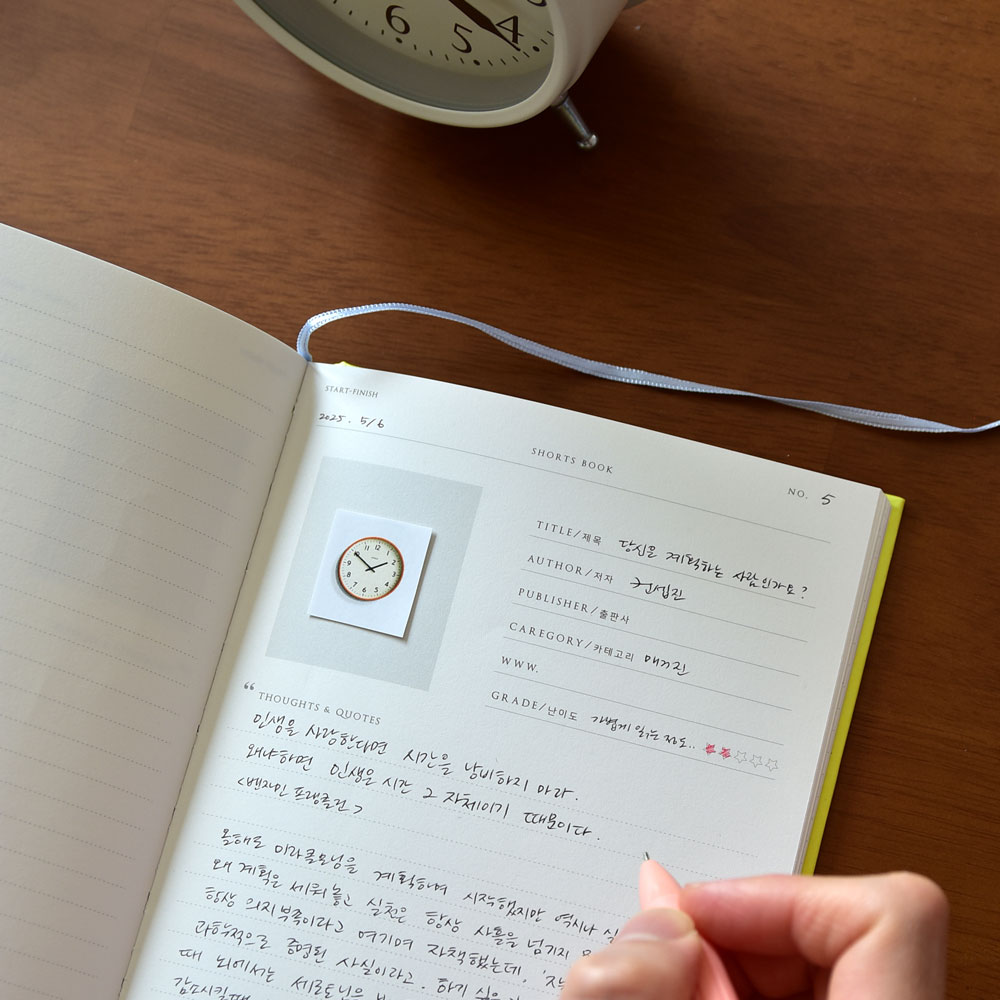 6 5 4
START-FINISH
2025. 5/6
SHORTS BOOK
NO. 5
TITLE/제목 당신은 계획하는 사람인가요?
AUTHOR/저자 권섭진
PUBLISHER/출판사
CAREGORY/카테고리 매거진
WWW.
GRADE/난이도 가볍게 읽는 정도..
“ THOUGHTS & QUOTES
인생을 사랑한다면 시간을 낭비하지 마라.
왜냐하면 인생은 시간 그 자체이기 때문이다.
<벤자민 프랭클린>
올해도 미라클모닝을 계획하며 시작했지만 역시나
왜 계획은 세워놓고 실천은 항상 사흘을 넘기지
항상 의지부족이라고 여기며 자책했는데,
과학적으로 증명된 사실이라고. 하기 싫은
때 뇌에서는 세로토닌은
감소시킬때